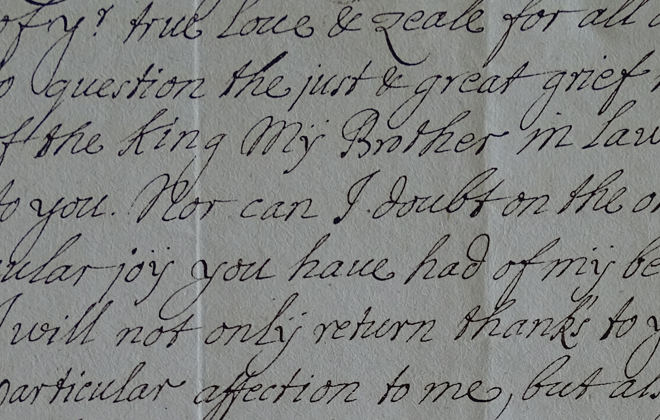 of yr true Loue & Zeale for all
question the just & great grief
the King Mÿ Brother in law
to you. Nor can I doubt on the
joÿ you haue had of mÿ
I will not only return thanks to
particular affection to me, but